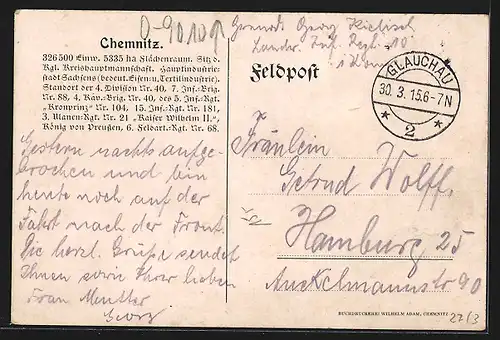 0-90109
Chemnitz.
326500 Einw. 5335 ha Flächenraum. Sitz d.
Kgl. Kreishauptmannschaft. Hauptindustrie-
stadt Sachsens (bedeut. Eisen- u. Textilindustrie).
Standort der 4. Division Nr. 40, 7. Inf.-Brig.
Nr. 88, 4. Kav.-Brig. Nr. 40, des 5. Inf.-Rgt.
„Kronprinz“ Nr. 104, 15. Inf.-Rgt. Nr. 181,
3. Ulanen-Rgt. Nr. 21 „Kaiser Wilhelm II.“,
König von Preußen, 6. Feldart.-Rgt. Nr. 68.
Gestern nachts aufge-
brochen und bin
heute noch auf der
Fahrt nach der Front.
Die herzl. Grüße sendet
Ihnen sowie Ihrer lieben
Frau Mutter
Georg
Georg
Landw. Inf. Regt. 10
Feldpost
GLAUCHAU
30. 3. 15. 6-7N
* 2 *
Fräulein
Getrud Wolff.
Hamburg 25
Auckelmannstr 90
BUCHDRUCKEREI WILHELM ADAM, CHEMNITZ
27/3